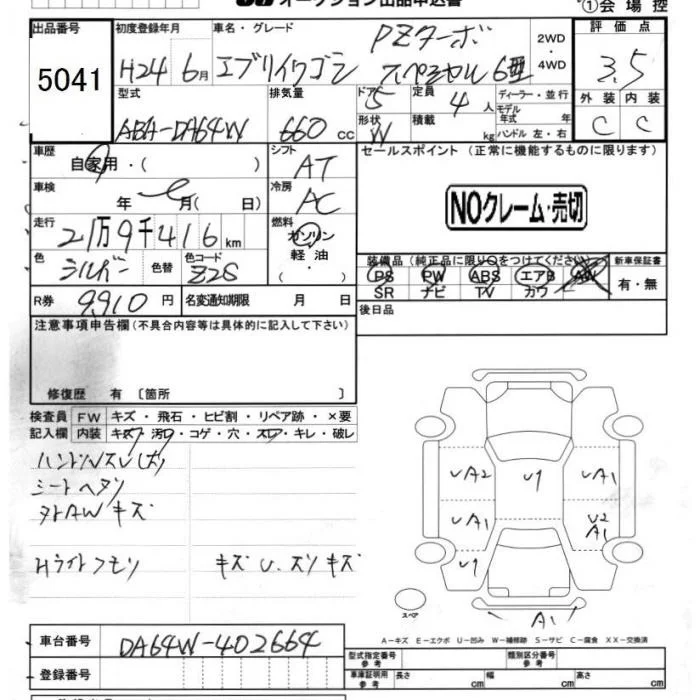 オークション出品申込書
①会場控
出品番号
5041
初度登録年月
H24 6月
車名・グレード
エブリイワゴン
PZターボ
スペシャル 6型
2WD
・
4WD
評価点
3.5
外装 内装
C C
型式
ABA-DA64W
排気量
660 cc
ドア 5
形状 W
定員 4 人
積載 kg
ディーラー・並行
モデル
年式 年
ハンドル 左・右
車歴
自家用・( )
シフト
AT
車検
年 月( 日)
冷房
AC
走行
21万9千416 km
燃料
ガソリン
・
軽油
・
( )
色
シルバー
色替
色コード
Z2S
R券
9,910 円
名変通知期限 月 日
セールスポイント (正常に機能するものに限ります)
NOクレーム・売切
装備品(純正品に限り○をつけてください)
PS PW ABS エアB AW
SR ナビ TV カワ
新車保証書
有・無
後日品
注意事項申告欄(不具合内容等は具体的に記入して下さい)
修復歴 有 〔箇所 〕
検査員
記入欄
FW キズ・飛石・ヒビ割・リペア跡・×要
内装 キズ・汚レ・コゲ・穴・スレ・キレ・破レ
ハンドルスレ(大)
シートヘタリ
AW キズ
Hライトクモリ
キズ U. スリキズ
UA2 U1 UA1
UA1 U2
A1
U1
A1
スペア
A-キズ E-エクボ U-凹み W-補修跡 S-サビ C-腐食 XX-交換済
車台番号
DA64W-402664
登録番号
型式指定番号
参考
類別区分番号
参考
車庫証明用
参考
長さ cm 幅 cm 高さ cm